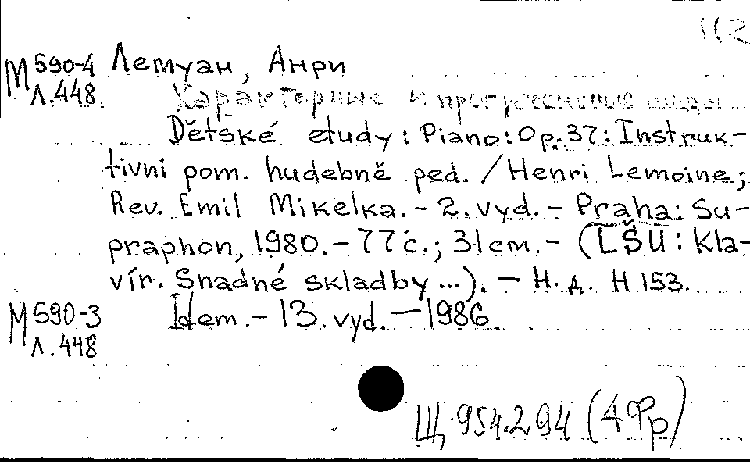 М 590-4 Лемуан, Анри
Л.448
Характерные и прогрессивные
Dětské etudy: Piano: Op. 37: Instruk-
tivní pom. hudebně ped. / Henri Lemoine;
Rev. Emil Mikelka. - 2. vyd. - Praha: Su-
praphon, 1980. - 77 с.; 31 cm. - (LŠU: Kla-
vír. Snadné skladby ...). - Н. д. H 153.
М 590-3 Idem. - 13. vyd. - 1986
Л.448
Щ 954.294 (4Фр)